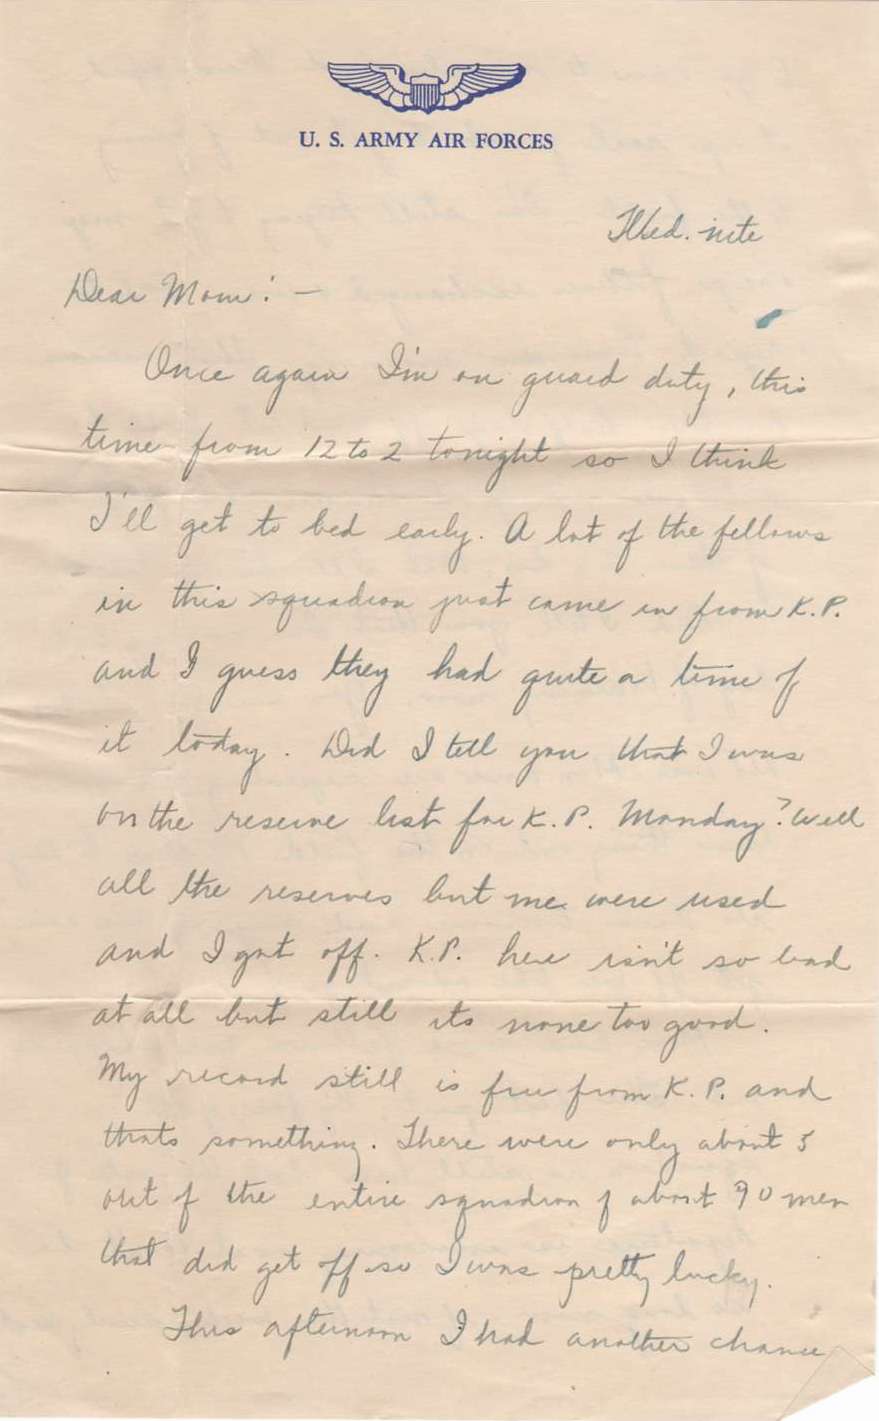 U. S. ARMY AIR FORCES
Wed. nite
Dear Mom: —
Once again I'm on guard duty, this
time from 12 to 2 tonight so I think
I'll get to bed early. A lot of the fellows
in this squadron just came in from K.P.
and I guess they had quite a time of
it today. Did I tell you that I was
on the reserve list for K.P. Monday? Well
all the reserves but me were used
and I got off. K.P. here isn't so bad
at all but still its none too good.
My record still is free from K.P. and
thats something. There were only about 5
out of the entire squadron of about 90 men
that did get off so I was pretty lucky.
This afternoon I had another chance